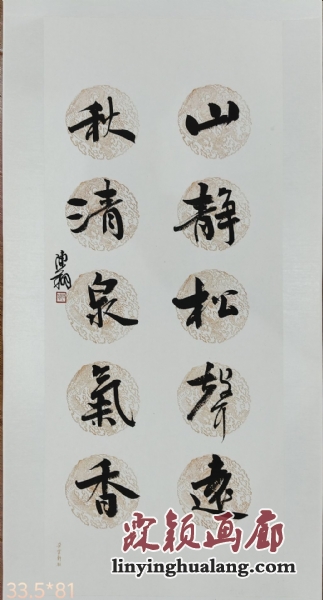 山靜松聲遠
秋清泉氣香
画廊
linyinghualang.com
33.5*81